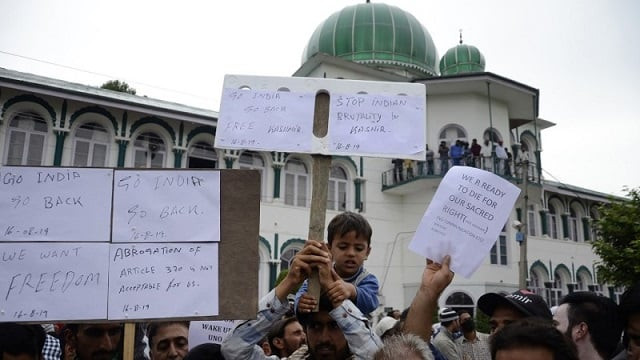 GO INDIA
GO BACK
FREE KASHMIR
16-8-19
STOP INDIAN
BRUTALITY in
KASMIR.
16-8-19
GO INDIA
GO BACK
16-08-19
GO INDIA
GO BACK.
16-8-19
WE WANT
FREEDOM
16-8-19
ABROGATION OF
ARTICLE 370 is NOT
ACCEPTABLE FOR US.
16-8-19
WE R READY
TO DIE FOR
OUR SACRED
RIGHT
WAKE UP
UNO